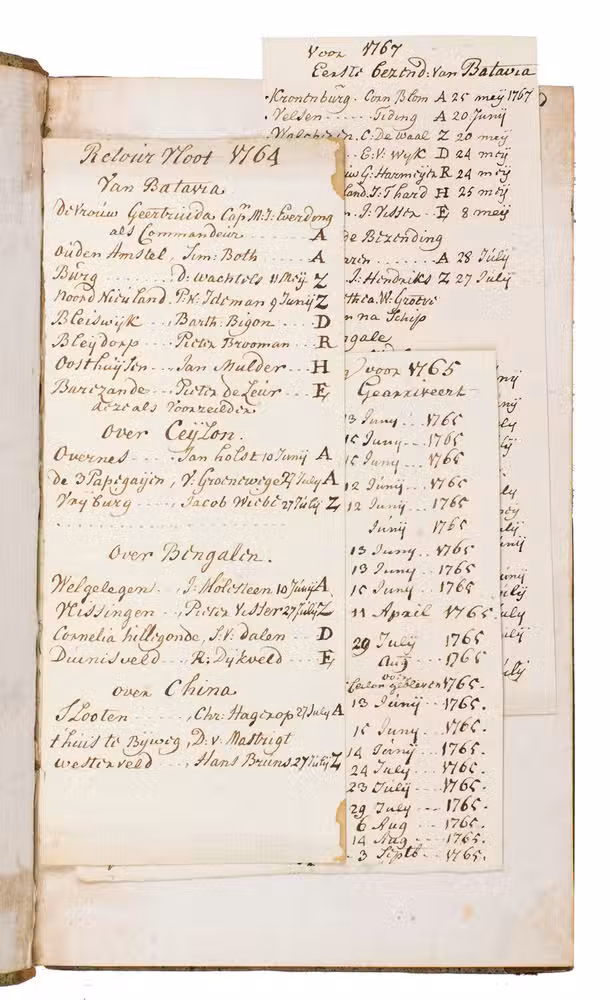 Voor 1767
Eerste bezend: van Batavia
Kronenburg. Corn Blom A 25 meij 1767
Velsen ..... Tiding A 20 Junij
C: De Waal Z 20 meij
. . E: V: Wyk D 24 meij
G: Harmeyer R 24 meij
land. J: Thard H 25 meij
J: Visser .. E 8 meij
de Bezending
A 28 July
J: Hendriks Z 27 July
W: Groeve
na Schip
ngale
Retour Vloot 1764
Van Batavia
De Vrouw Geertruida Capn M: J: Everdong
als Commandeur ........ A
Ouden Amstel, Sim: Both ... A
Burg ........ D: Wachtels 11 Meij Z
Noord Nieuland. P: N: Ideman 9 Junij Z
Bleiswyk ..., Barth: Bigon .... D
Bleydorp ... Pieter Brooman .... R
Oosthuysen ... Jan Mulder ... H
Barezande ... Pieter de Leur .. E
deze als Voorzeilder
Over Ceylon.
Overnes .... Jan holst 10 Junij A
de 3 Papegaijen, V: Groenewege 27 July A
Vryburg ...., Jacob Wiebe 27 July Z
Over Bengalen.
Welgelegen .., J: Molsteen 10 Junij A
Vlissingen .., Pieter Vester 27 July Z
Cornelia hillegonde, J: V: dalen .. D
Duinisveld .., R: Dykveld ... E
over China
Slooten ....., Chr: Hagerop 27 July A
t'huis te Byweg, D: v: Mastrigt
westerveld ..., Hans Bruns 27 July Z
voor 1765
Gearriveert
13 Juny ... 1765
15 Juny ... 1765
15 Juny ... 1765
12 Junij ... 1765
12 Juny ... 1765
Junij 1765
13 Juny ... 1765
13 Juny ... 1765
15 Juny ... 1765
11 April 1765.
29 July 1765
Aug ... 1765
voor
Ceilon gebleven 1765.
13 Junij ... 1765.
15 Juny ... 1765.
14 Junij ... 1765.
24 July ... 1765.
23 July ... 1765.
29 July ... 1765.
6 Aug ... 1765.
14 Aug ... 1765.
3 Septb ... 1765.